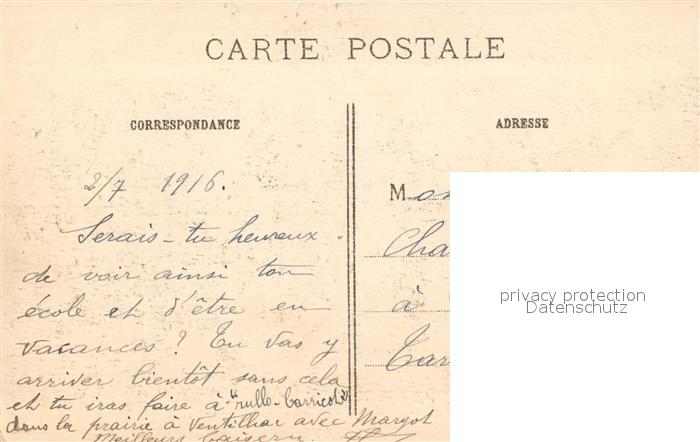 CARTE POSTALE
CORRESPONDANCE
2/7 1916.
Serais-tu heureux
de voir ainsi ton
école et d'être en
vacances ? Tu vas y
arriver bientôt sans cela
et tu iras faire à "rullo-barricot"
dans la prairie à Ventilhac avec Margot
Meilleurs baisers.
ADRESSE
Mon
Cha
à
Tar
privacy protection
Datenschutz